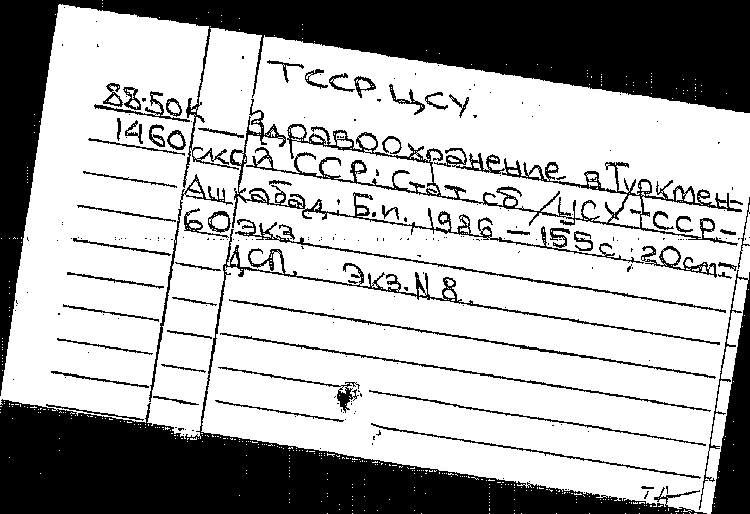 ТССР. ЦСУ.
88.50к
1460
Здравоохранение в Туркмен-
ской ССР: Стат сб / ЦСУ ТССР -
Ашхабад: Б.и., 1986. - 155 с.; 20 см. -
60 экз.
ДСП. Экз. N 8.